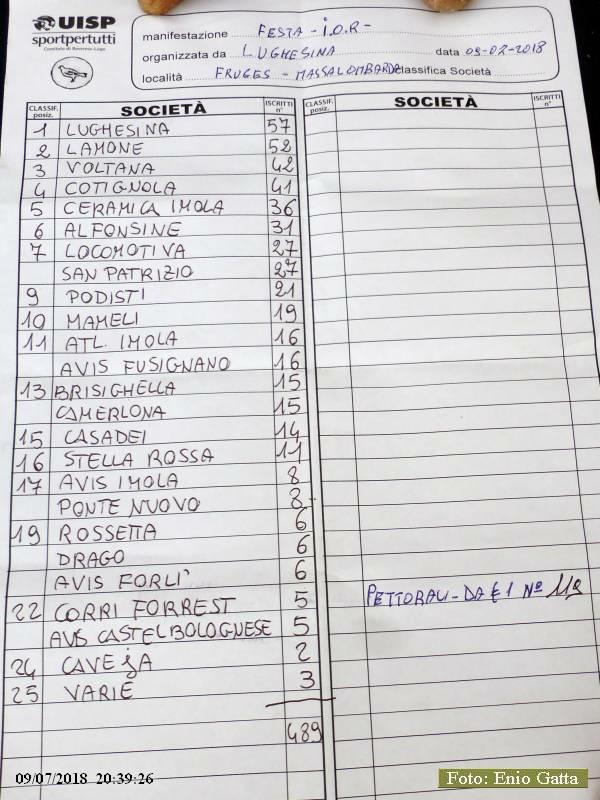 UISP
sportpertutti
Comitato di Ravenna-Lugo
manifestazione FESTA - i.O.R -
organizzata da LUGHESINA data 09-07-2018
località FRUGES - MASSALOMBARDA classifica Società
CLASSIF. posiz. SOCIETÀ ISCRITTI n° CLASSIF. posiz. SOCIETÀ ISCRITTI n°
1 LUGHESINA 57
2 LAMONE 52
3 VOLTANA 42
4 COTIGNOLA 41
5 CERAMICA IMOLA 36
6 ALFONSINE 31
7 LOCOMOTIVA 27
SAN PATRIZIO 27
9 PODISTI 21
10 MAMELI 19
11 ATL. IMOLA 16
AVIS FUSIGNANO 16
13 BRISIGHELLA 15
CAMERLONA 15
15 CASADEI 14
16 STELLA ROSSA 11
17 AVIS IMOLA 8
PONTE NUOVO 8
19 ROSSETTA 6
DRAGO 6
AVIS FORLI' 6
22 CORRI FORREST 5
PETTORALI - DA € 1 Nº
AVIS CASTELBOLOGNESE 5
24 CAVEJA 2
25 VARIE 3
489
09/07/2018 20:39:26
Foto: Enio Gatta